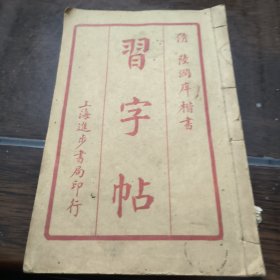 清 陸潤庠楷書
習字帖
上海進步書局印行